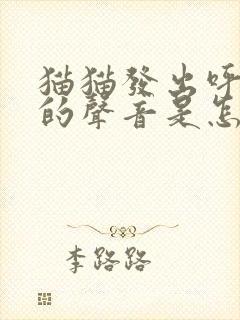 猫猫發出呼
的聲音是怎
李路路